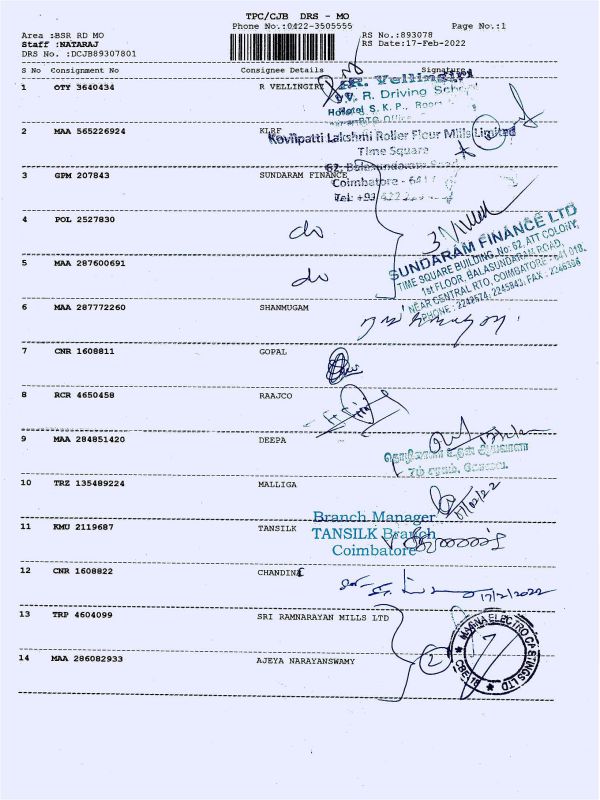 TPC/CJB DRS - MO
Phone No.:0422-3505555
Page No.:1
Area :BSR RD MO
RS No.:893078
Staff :NATARAJ
RS Date:17-Feb-2022
DRS No. :DCJB89307801
S No Consignment No Consignee Details Signature
1 OTY 3640434 R VELLINGIRI
R. Vellingiri
R. Driving School
Hotel S. K. P., Room
2 MAA 565226924 KLRF
Kovilpatti Lakshmi Roller Flour Mills Limited
Time Square
62, Balasundaram Road
Coimbatore - 641
3 GPM 207843 SUNDARAM FINANCE
Tel: +91 422
4 POL 2527830 do
SUNDARAM FINANCE LTD
TIME SQUARE BUILDING, No: 62, ATT COLONY,
1st FLOOR, BALASUNDARAM ROAD,
NEAR CENTRAL RTO, COIMBATORE - 641 018.
PHONE : 2242574, 2245843, FAX : 2246356
5 MAA 287600691 do
6 MAA 287772260 SHANMUGAM
7 CNR 1608811 GOPAL
8 RCR 4650458 RAAJCO
9 MAA 284851420 DEEPA
10 TRZ 135489224 MALLIGA
17/02/22
11 KMU 2119687 TANSILK
Branch Manager
TANSILK Branch
Coimbatore
12 CNR 1608822 CHANDINI
17/2/2022
13 TRP 4604099 SRI RAMNARAYAN MILLS LTD
14 MAA 286082933 AJEYA NARAYANSWAMY
2
MAGNA ELECTRO CASTINGS LTD
CBE-18